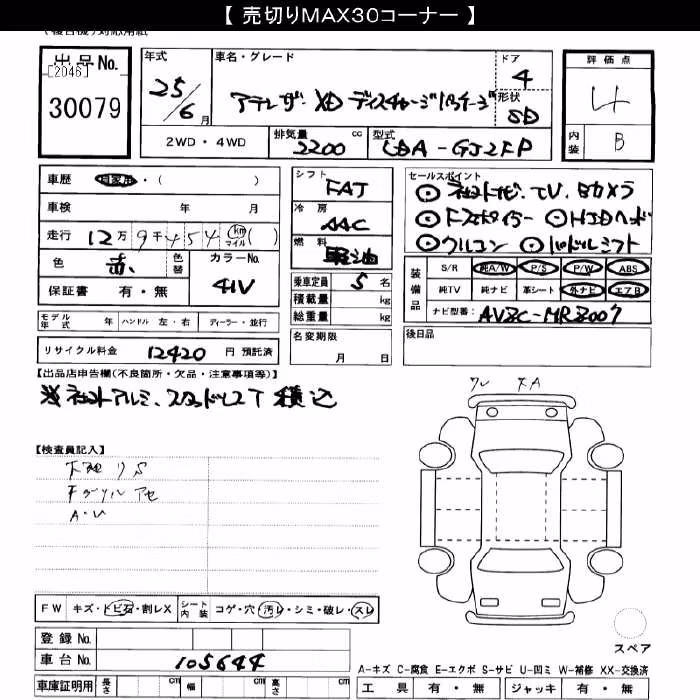 【 売切りMAX30コーナー 】
出品No.
[2046]
30079
年式
25/6月
車名・グレード
アテンザ XD ディスチャージパッケージ
ドア
4
形状
SD
評価点
4
内装
B
2WD・4WD
排気量 2200 cc
型式
LDA-GJ2FP
車歴 自家用・( )
車検 年 月
走行 12万9千454 km マイル( )
色 赤
色替
カラーNo.
41V
保証書 有・無
シフト
FAT
冷房
AAC
燃料
軽油
乗車定員 5 名
積載量 kg
総重量 kg
セールスポイント
◎ ネットナビ、TV、Bカメラ
◎ ドスポイラー ◎ HIDヘッド
◎ クルコン ◎ パドルシフト
装備品
S/R 純A/W P/S P/W ABS
純TV 純ナビ 革シート 外ナビ エアB
ナビ型番: AVZC-MR8007
モデル年式 年 ハンドル 左・右 ディーラー・並行
名変期限
月 日
後日品
リサイクル料金 12420 円 預託済
【出品店申告欄(不良箇所・欠品・注意事項等)】
※ ネットアルミ、スタッドレスT 積込
【検査員記入】
下廻り S
Fグリル アセ
A・U
ワレ
F.A
FW キズ・トビ石・割レX
シート内装 コゲ・穴・汚レ・シミ・破レ・スレ
登録 No.
車台 No. 105644
車庫証明用 長さ cm 幅 cm 高さ cm
スペア
A-キズ C-腐食 E-エクボ S-サビ U-凹ミ W-補修 XX-交換済
工具 有・無 ジャッキ 有・無